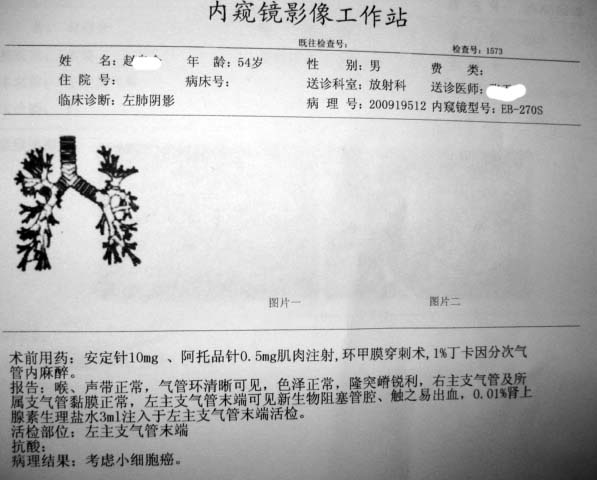 内窥镜影像工作站
既往检查号： 检查号：1573
姓 名：赵 年 龄：54岁 性 别：男 费 类：
住 院 号： 病床号： 送诊科室：放射科 送诊医师：
临床诊断：左肺阴影 病 理 号：200919512 内窥镜型号：EB-270S
图片一 图片二
术前用药：安定针10mg 、阿托品针0.5mg肌肉注射，环甲膜穿刺术，1%丁卡因分次气
管内麻醉。
报告：喉、声带正常，气管环清晰可见，色泽正常，隆突嵴锐利，右主支气管及所
属支气管黏膜正常，左主支气管末端可见新生物阻塞管腔、触之易出血，0.01%肾上
腺素生理盐水3ml注入于左主支气管末端活检。
活检部位：左主支气管末端
抗酸：
病理结果：考虑小细胞癌。